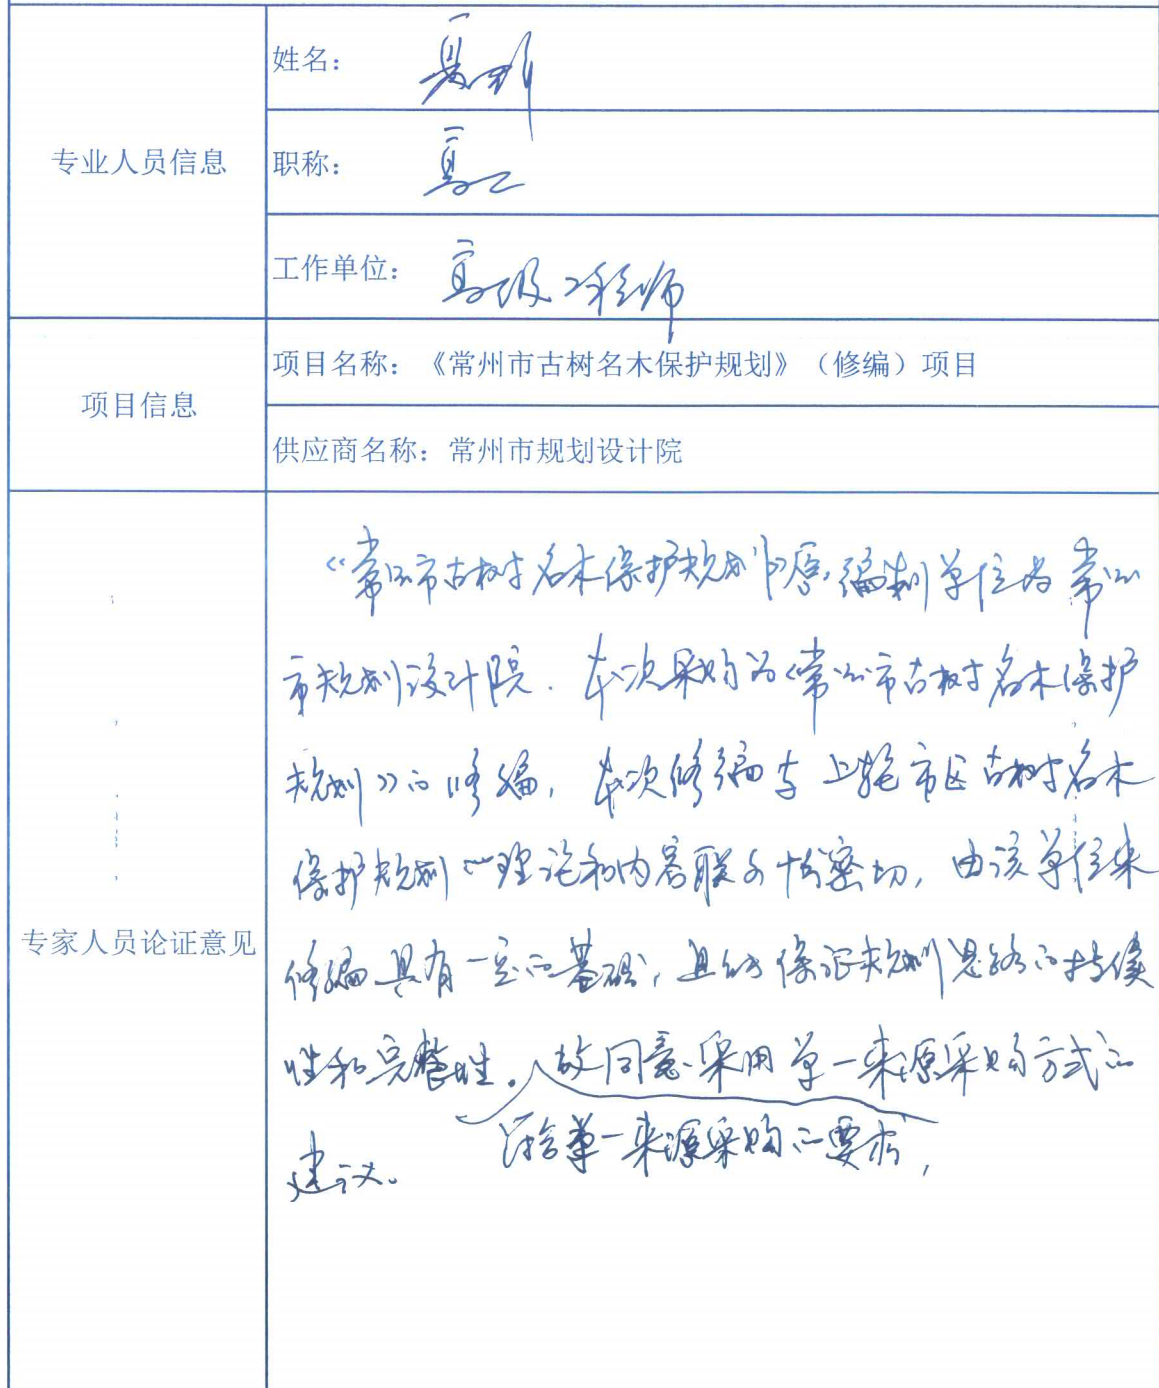 姓名：夏
专业人员信息
职称：高工
工作单位：高级工程师
项目信息
项目名称：《常州市古树名木保护规划》（修编）项目
供应商名称：常州市规划设计院
专家人员论证意见
《常州市古树名木保护规划》原编制单位为常州
市规划设计院．本次采购为《常州市古树名木保护
规划》的修编，本次修编与上轮市区古树名木
保护规划的理论和内容联系十分密切，由该单位来
修编具有一定的基础，且能够保证规划思路的持续
性和完整性。故同意采用单一来源采购方式的
符合单一来源采购的要求，
建议。